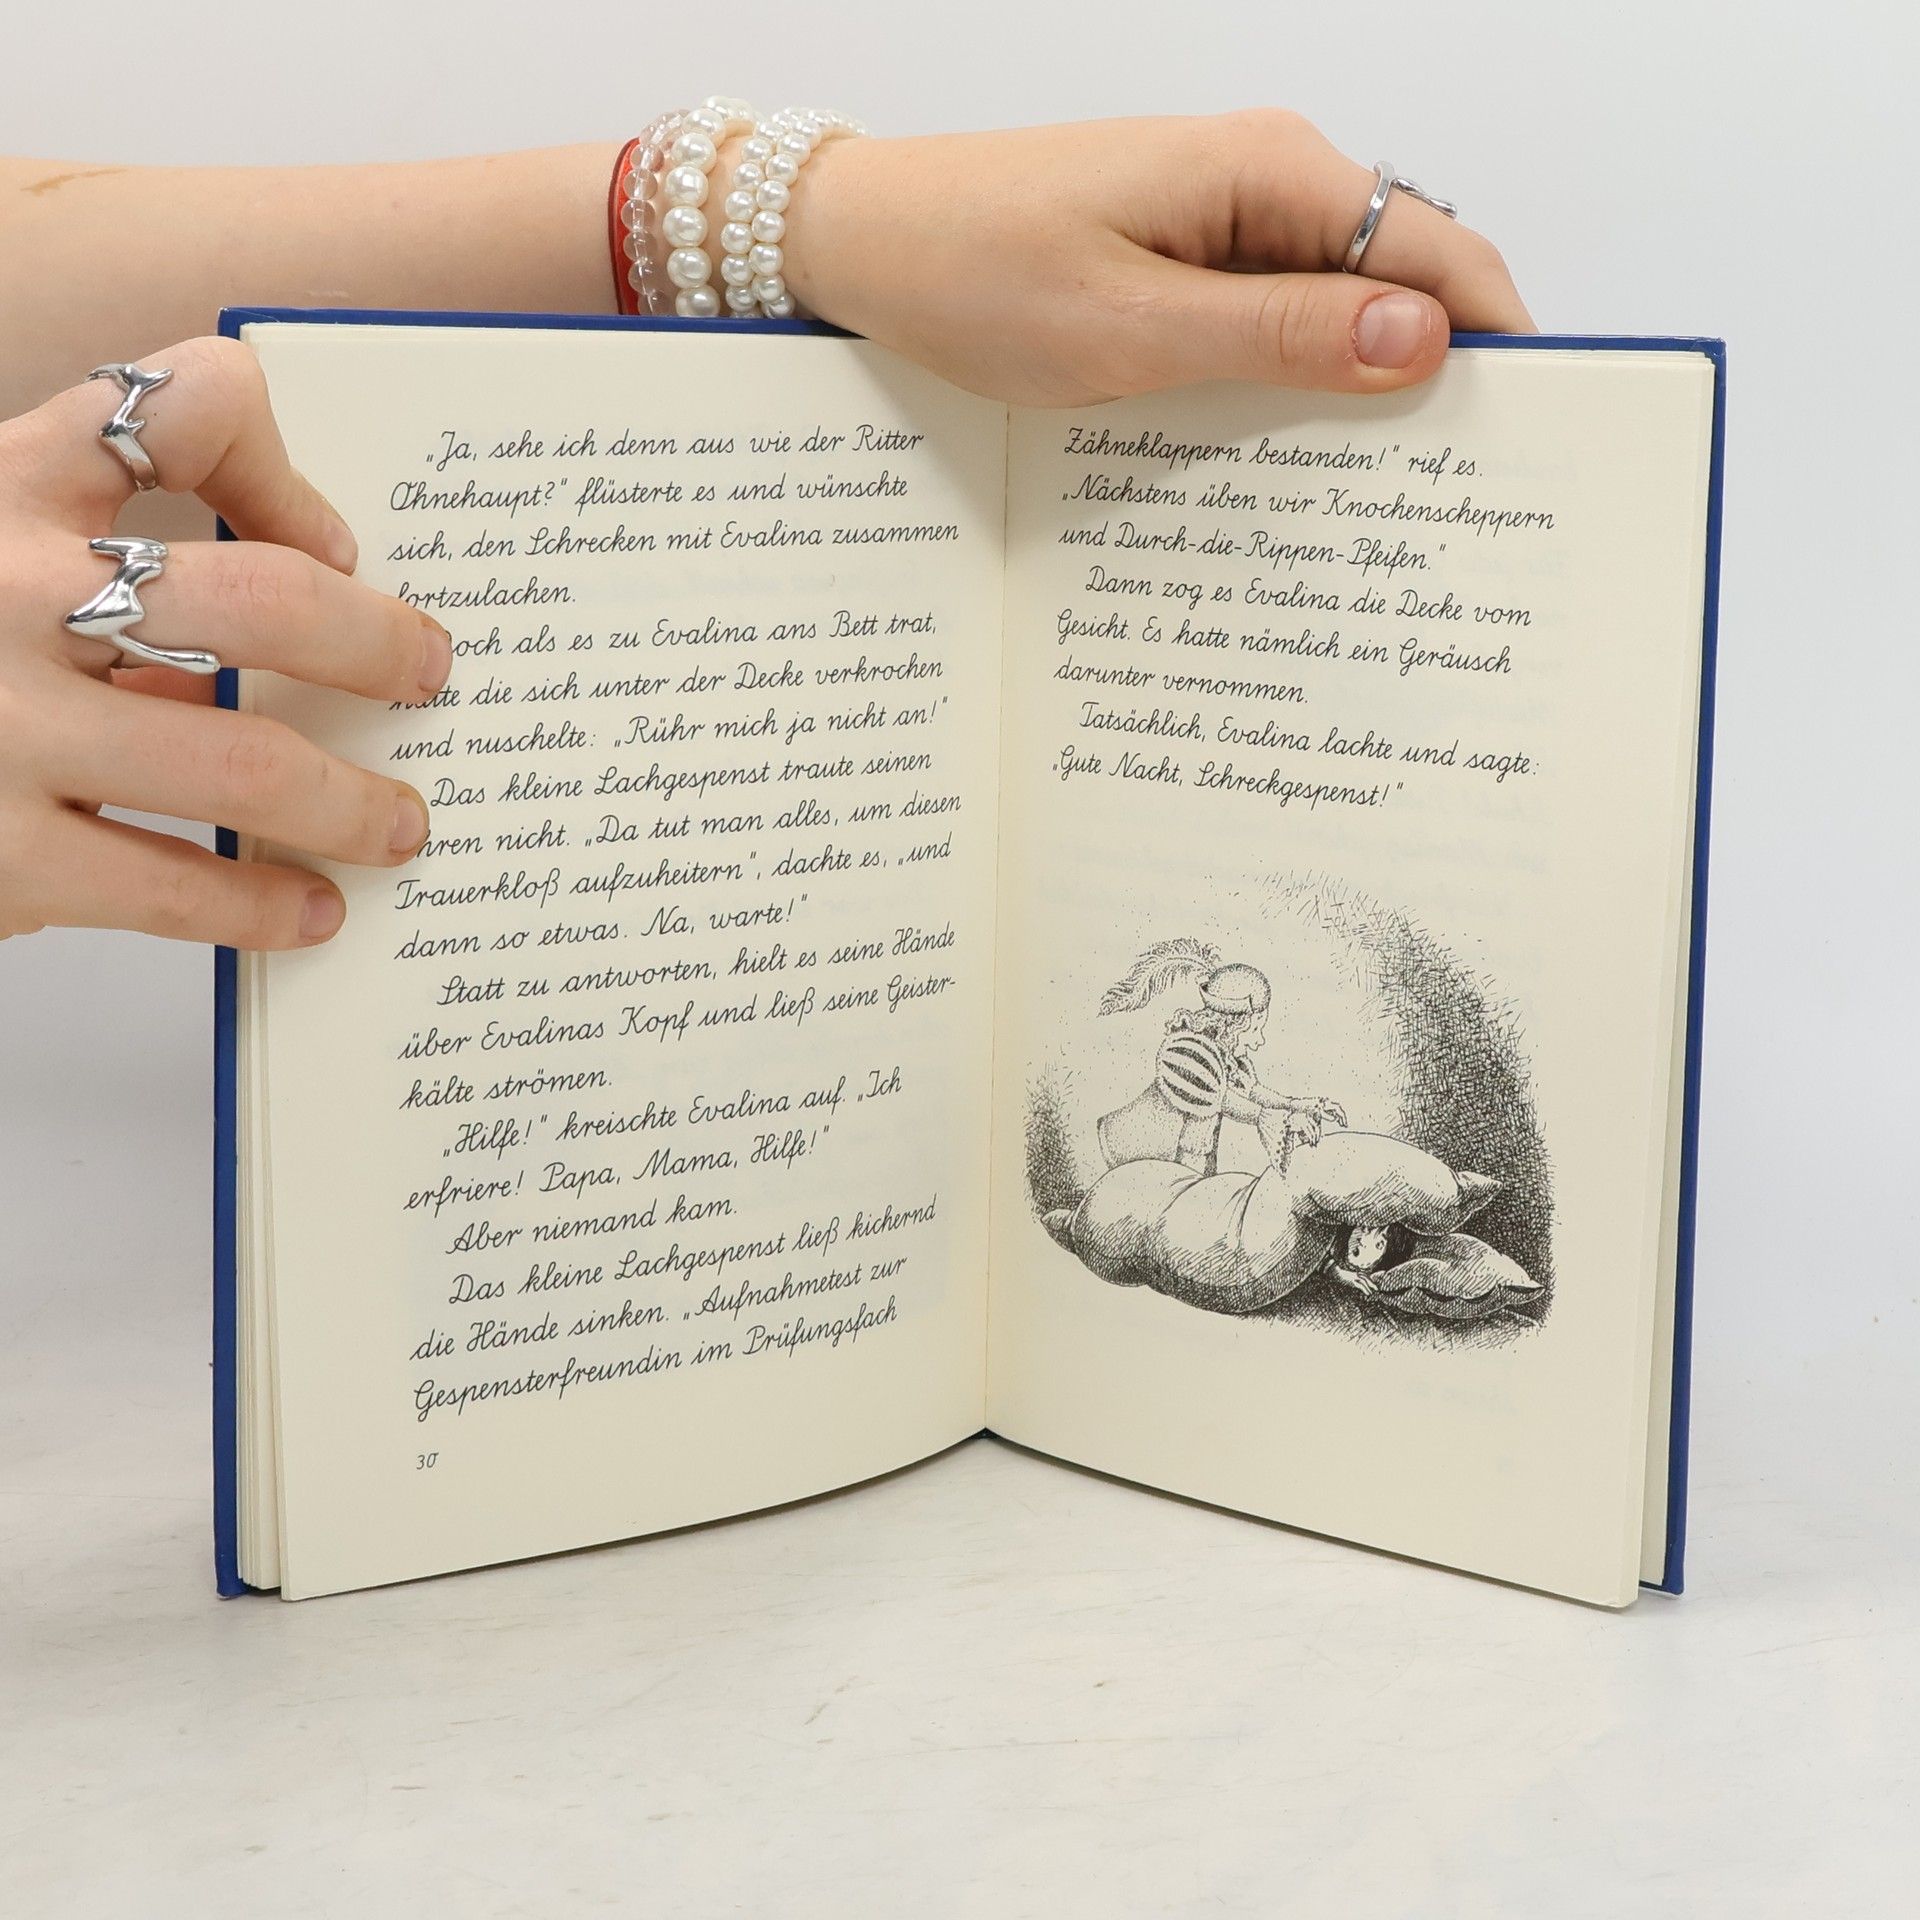 „Ja, sehe ich denn aus wie der Ritter
Ohnehaupt?" flüsterte es und wünschte
sich, den Schrecken mit Evalina zusammen
fortzulachen.
och als es zu Evalina ans Bett trat,
hatte die sich unter der Decke verkrochen
und nuschelte: „Rühr mich ja nicht an!"
Das kleine Lachgespenst traute seinen
hren nicht. „Da tut man alles, um diesen
Trauerkloß aufzuheitern", dachte es, „und
dann so etwas. Na, warte!"
Statt zu antworten, hielt es seine Hände
über Evalinas Kopf und ließ seine Geister-
kälte strömen.
„Hilfe!" kreischte Evalina auf. „Ich
erfriere! Papa, Mama, Hilfe!"
Aber niemand kam.
Das kleine Lachgespenst ließ kichernd
die Hände sinken. „Aufnahmetest zur
Gespensterfreundin im Prüfungsfach
30
Zähneklappern bestanden!" rief es.
„Nächstens üben wir Knochenscheppern
und Durch-die-Rippen-Pfeifen."
Dann zog es Evalina die Decke vom
Gesicht. Es hatte nämlich ein Geräusch
darunter vernommen.
Tatsächlich, Evalina lachte und sagte:
„Gute Nacht, Schreckgespenst!"